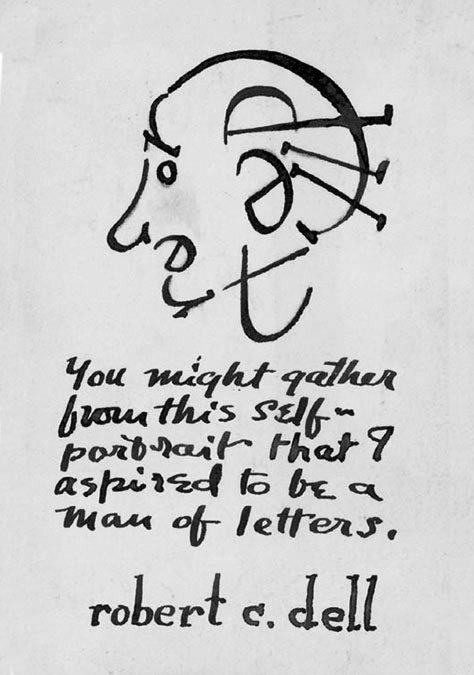 robert C Dell
You might gather
from this self-
portrait that I
aspired to be a
man of letters.
robert c. dell